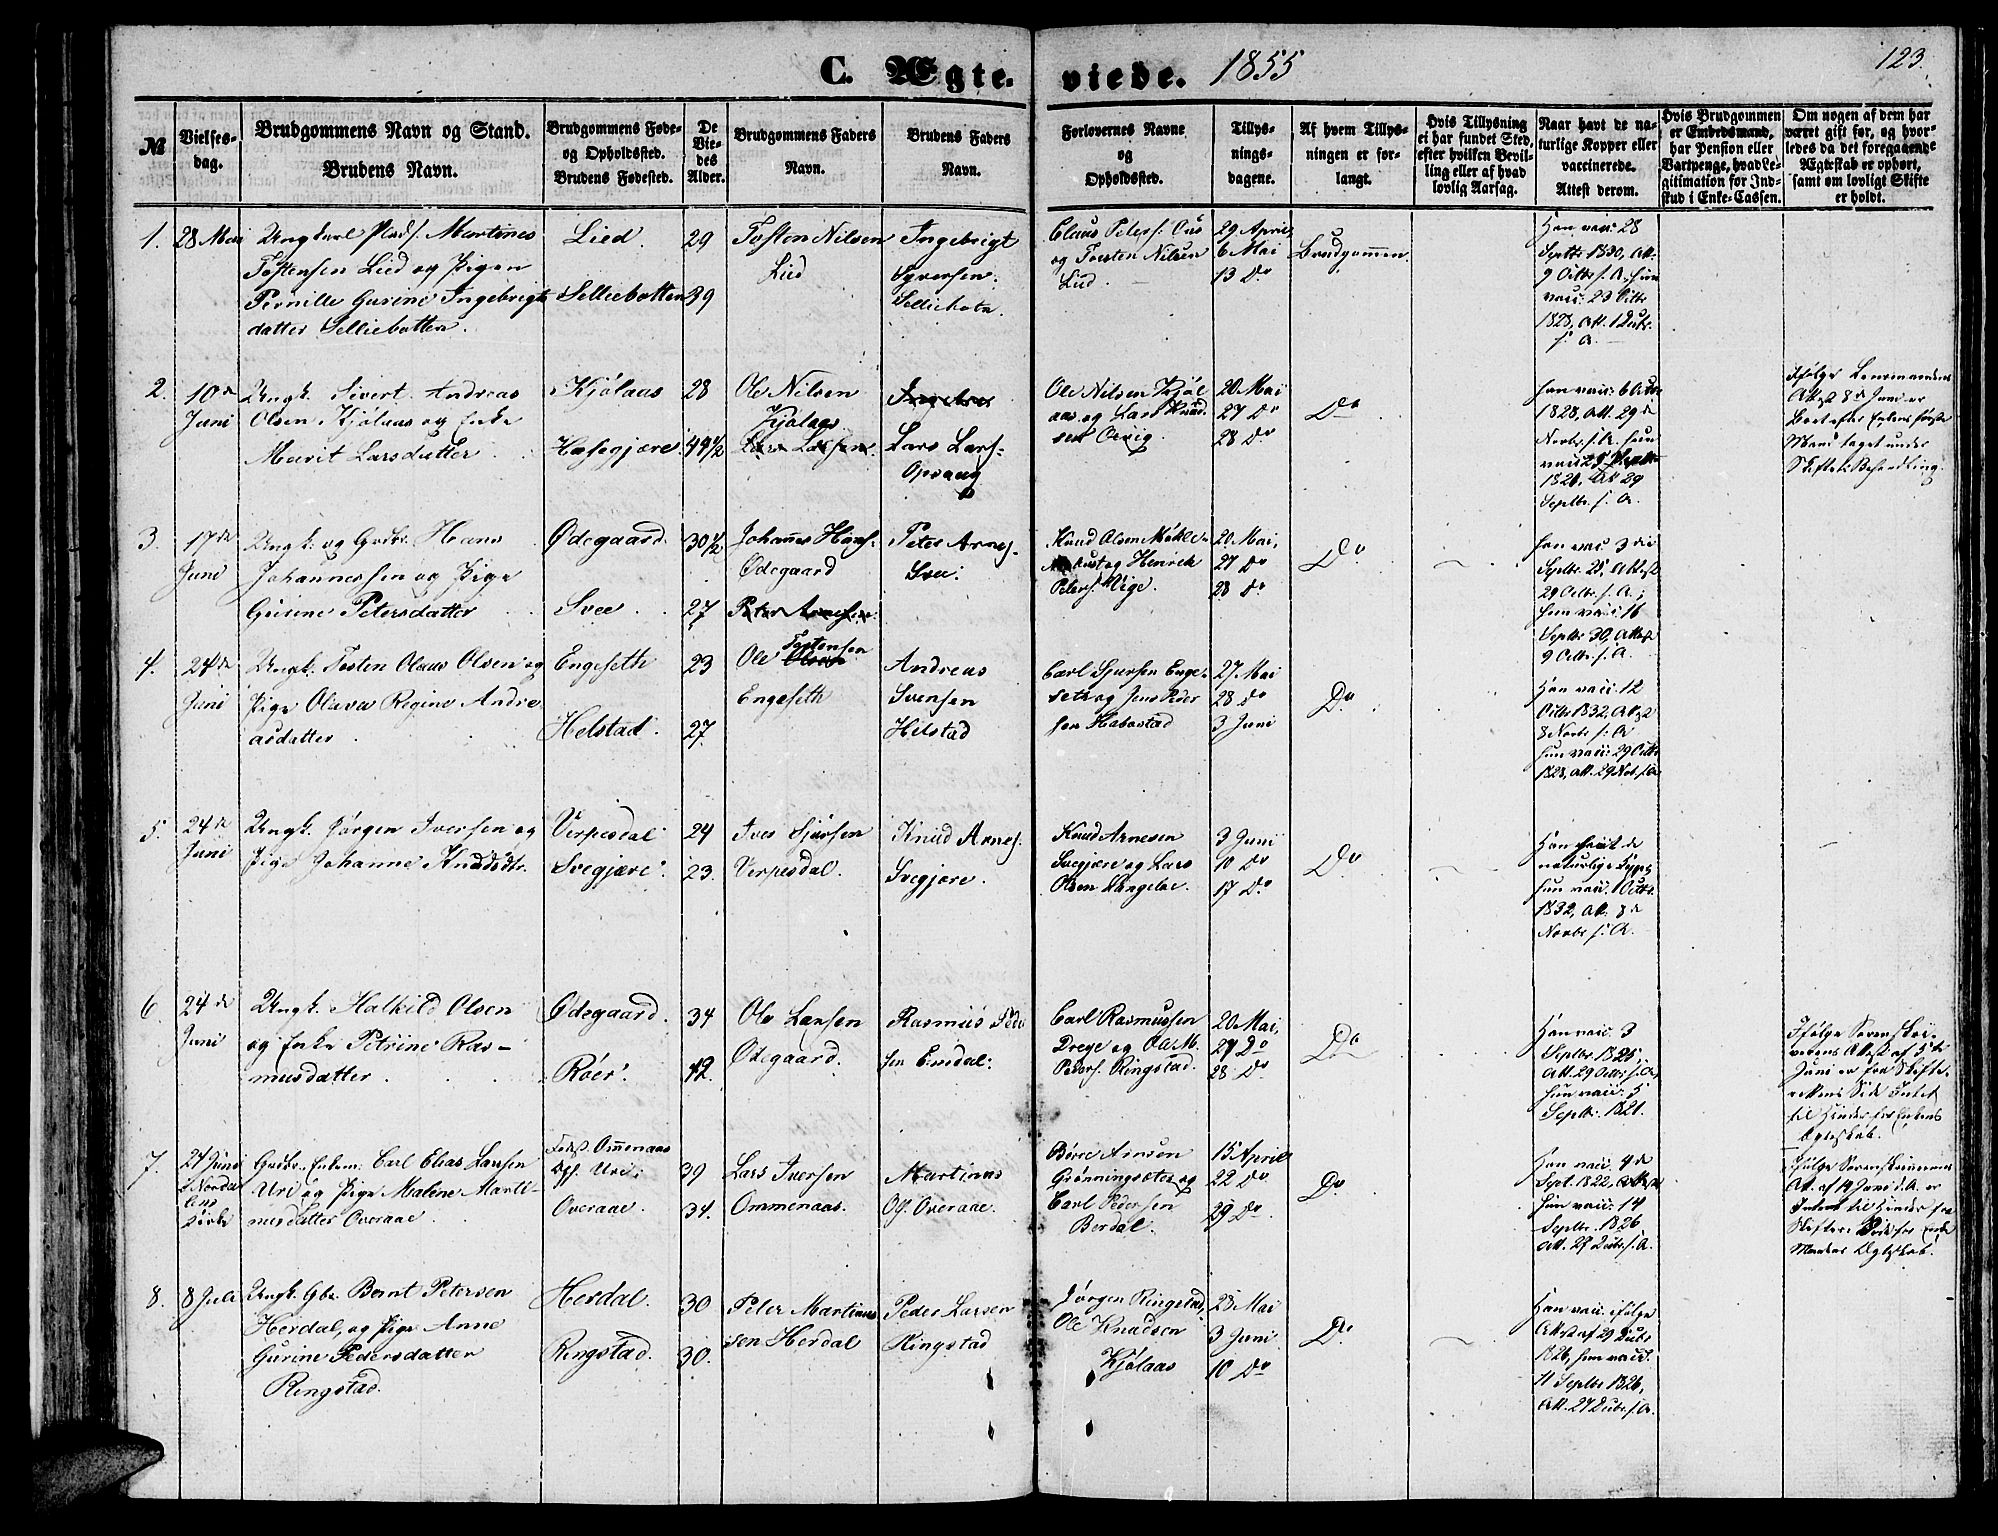 C. Ægte- viede. 1855
123.
№
Vielses-
dag.
Brudgommens Navn og Stand.
Brudens Navn.
Brudgommens Føde-
og Opholdssted.
Brudens Fødested.
De
Vie-
des
Alder.
Brudgommens Faders
Navn.
Brudens Faders
Navn.
Forlovernes Navne
og
Opholdssted.
Tillys-
nings-
dagene.
Af hvem Tillys-
ningen er for-
langt.
Hvis Tillysning
ei har fundet Sted,
efter hvilken Bevil-
ling eller af hvad
lovlig Aarsag.
Naar havt de na-
turlige Kopper eller
vaccinerede.
Attest derom.
Hvis Brudgommen
er Embedsmand,
har Pension eller
Vartpenge, hvad Le-
gitimation for Ind-
skud i Enke-Cassen.
Om nogen af dem har
været gift før, og hvor-
ledes da det foregaaende
Ægteskab er ophørt,
samt om lovligt Skifte
er holdt.
1.
28 Mai
Ungkarl Martines
Tostensen Lied og Pigen
Pernille Gurine Ingebrigt
datter Selliebotten.
Lied.
Selliebotten
29
39
Tosten Nilsen
Lied
Ingebrigt
Syversen
Claus Peters:
og Torsten Nilsen
Lied.
29 April
6 Mai
13 Do
Brudgommen
Han vacc: 28
Septbr 1830, Att.
9 Octbr s. A. hun
vacc: 23 Octbr
1828, Att. 1 Decbr.
s. A.
2.
10de
Juni
Ungk. Sivert Andreas
Olsen Kjølaas og Enke
Marit Larsdatter
Kjølaas
Hasegjære
28
49 1/2
Ole Nilsen
Kjølaas
Lars Larsen.
Lars Lars-
Opvaag
Ole Nilsen Kjøl
aas og Lars Knud
sen Oevig.
20 Mai
27 Do
28 Do
Do
1828, Att. 29 de
Novbr. s. A. hun
1821, Att 29
Septbr. s. A.
Ifølge Lensmandens
Attest 8de Juni er
Boet efter Enkens første
Mand taget under
Skifte-Behandling.
3.
17de
Juni
Ungk. og Gbr. Hans
Johannessen og Pige
Gurine Petersdatter
Ødegaard.
Svee
30 1/2
27
Johannes Hans-
Ødegaard
Peter Arnesen.
Peter Arnes-
Svee.
Knud Olsen
og Henrik
Peters.
20 Mai,
27 Do
28 Do
Do
han vacc 3 die
Septbr. 25, Attest
29 Octbr. s. A.;
hun vacc: 16
Septbr 30, Attest
9 Octbr. s. A.
4.
24de
Juni
Ungk. Tosten Olaus Olsen og
Pige Olava Regine Andre
asdatter
Engeseth
Helstad.
23
27
Ole Olsen Tostensen
Engeseth
Andreas
Svensen
Helstad
Carl Sjursen Enge-
seth og Jens Peder
sen
27 Mai
28 Do
3 Juni
Do
Han vacc: 12
Octbr 1832, Attest
8 Novbr s. A
hun vacc: 29 Octbr
1828, Att. 29 Nov. s. A
5.
24de
Juni
Ungk. Jørgen Iversen og
Pige Johanne Knudsdtr.
Verpesdal
Svegjære
24
23.
Iver Sjursen
Verpesdal.
Knud Arnes.
Svegjære.
Knud Arnesen
Svegjære og Lars
Olsen
3 Juni
10 Do
17 Do
Do
Han havt de
naturlige Kopper,
hun vacc. 1 Octbr.
1832, Att. 8 de
Novbr s. A.
6.
24de
Juni
Ungk. Halkild Olsen
og Enke Petrine Ras-
musdatter
Ødegaard.
Røer.
34
42.
Ole Larsen
Ødegaard.
Rasmus Peder
sen Emdal.
Carl Rasmussen
Drege og Ole M.
Peders. Ringstad.
20 Mai,
27 Do
28 Do
Do
Han vacc: 3
Septbr. 1825,
Att. 29 Octbr. s. A,
hun vacc: 5
Septbr. 1821.
Ifølge Sorenskri-
verens Attest af 5te
Juni er fra Skifte-
rettens Side Intet
til Hinder for Enkens
Ægteskab.
7.
24 Juni
i Norda
lens
Kirke
Gbr. Enkem: Carl Elias Larsen
Uri og Pige Malene Marti-
nusdatter Overaae.
Født Ommenaas
Opf. Uri.
Overaae.
39
34.
Lars Iversen
Ommenaas.
Martinus
Ol: Overaae.
Børre Arnsen
Grønningsæter og
Carl Pedersen
Berdal.
15 April
22 Do
29 Do
Do
Han vacc: 4 de
Sept. 1822,
hun vacc: 14
Septbr. 1826
Att. 27 Decbr. s. A.
Ifølge Sorenskriverens
Att. af 19 Juni d. A. er
Intet til Hinder fra
Skiftets Side for Enke
Mandens Ægteskab.
8.
8 Juli
Ungk. Gbr. Bernt Petersen
Herdal, og Pige Anne
Gurine Pedersdatter
Ringstad.
Herdal.
Ringstad.
30
30.
Peter Martinus
sen Herdal
Peder Larsen
Ringstad
Jørgen Ringstad,
Ole Knudsen
Kjølaas
28 Mai
3 Juni
10 Do
Do
Han vacc. ifølge
Attest af 29 Decbr
1826, hun vacc.
11 Septbr 1826,
Att. 27 Decbr. s. A.